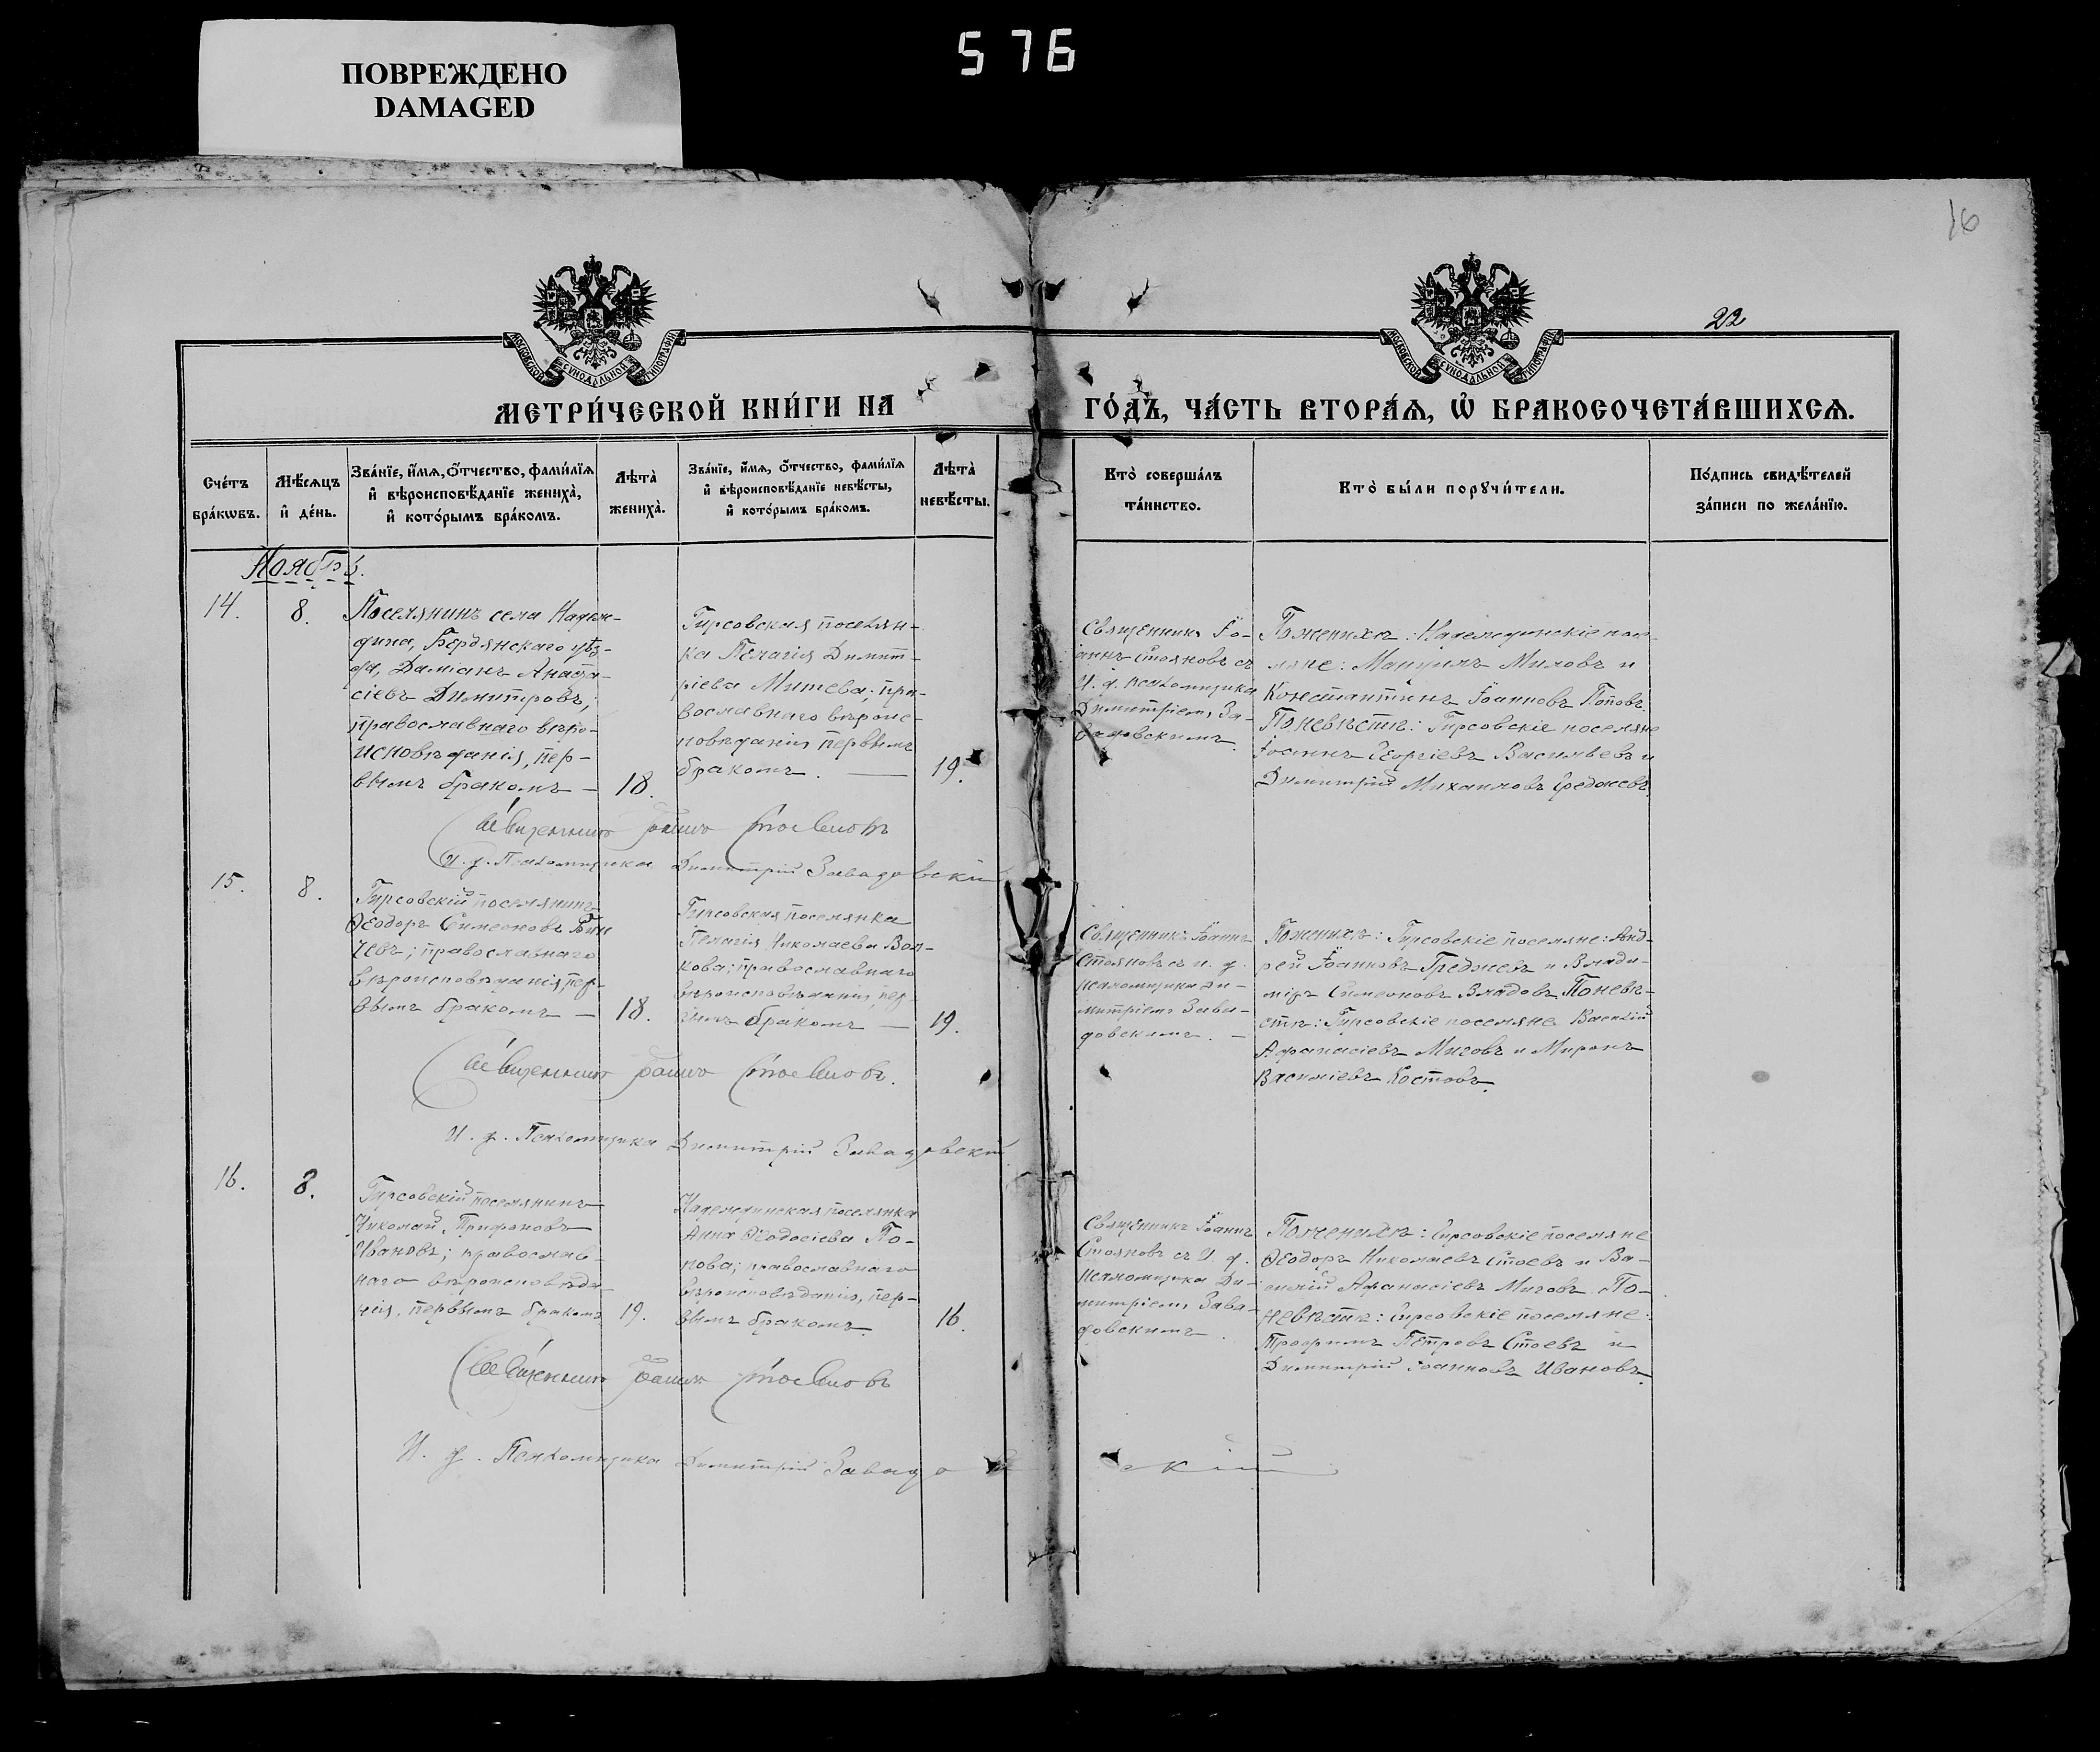 ПОВРЕЖДЕНО
DAMAGED
576
16
22
МОСКОВСКОЙ СѴНОДАЛЬНОЙ ТИПОГРАФІИ
МОСКОВСКОЙ СѴНОДАЛЬНОЙ ТИПОГРАФІИ
МЕТРИ́ЧЕСКОЙ КНИ́ГИ НА ГО́ДЪ, ЧА́СТЬ ВТОРА́Ѧ, Ѡ БРАКОСОЧЕТА́ВШИХСѦ.
Сче́тъ
бра́кѡвъ.
Мѣ́сѧцъ
и҆ де́нь.
Зва́нїе, и҆́мѧ, ѻ҆́тчество, фами́лїѧ
и҆ вѣроисповѣ́данїе жениха̀,
и҆ кото́рымъ бра́комъ.
Лѣ́та
жениха̀.
Зва́нїе, и҆́мѧ, ѻ҆́тчество, фами́лїѧ
и҆ вѣроисповѣ́данїе невѣ́сты,
и҆ кото́рымъ бра́комъ.
Лѣ́та
невѣ́сты.
Кто̀ соверша́лъ
та́инство.
Кто̀ бы́ли порꙋчи́тели.
По́дпись свидѣ́телей
за́писи по жела́нїю.
Ноябрь.
14.
8.
Поселянинъ села Надеж-
дина, Бердянскаго уѣз-
да, Даміанъ Анаста-
сіевъ Димитровъ;
православнаго вѣро-
исповѣданія, пер-
вымъ бракомъ —
18.
Гирсовская поселян-
ка Пелагія Димит-
ріева Митева; пра-
вославнаго вѣроис-
повѣданія первымъ
бракомъ. —
19.
Священникъ Іо-
аннъ Стояновъ съ
И. д. псаломщика
Димитріемъ За-
вадовскимъ.
По женихѣ: Надеждинскіе посе-
ляне: Мануилъ Миловъ и
Константинъ Іоанновъ Поповъ.
По невѣстѣ: Гирсовскіе поселяне
Іоаннъ Георгіевъ Васильевъ и
Димитрій Михаиловъ
Священникъ Іоаннъ Стояновъ
И. д. Псаломщика Димитрій Завадовскій
15.
8.
Гирсовскій поселянинъ
Ѳеодоръ Симеоновъ
чевъ; православнаго
вѣроисповѣданія, пер-
вымъ бракомъ —
18.
Гирсовская поселянка
Пелагія Николаева Вол-
кова; православнаго
вѣроисповѣданія, пер-
вымъ бракомъ —
19.
Священникъ Іоаннъ
Стояновъ съ и. д.
псаломщика Ди-
митріемъ Зава-
довскимъ. —
По женихѣ: Гирсовскіе поселяне: Анд-
рей Іоанновъ Греджевъ и Влади-
міръ Симеоновъ Владовъ. По невѣ-
стѣ: Гирсовскіе поселяне Василій
Афанасіевъ Миговъ и Миронъ
Василіевъ Костовъ.
Священникъ Іоаннъ Стояновъ.
И. д. Псаломщика Димитрій Завадовскій
16.
8.
Гирсовскій поселянинъ
Николай Трифоновъ
Ивановъ; православ-
наго вѣроисповѣда-
нія, первымъ бракомъ
19.
Надеждинская поселянка
Анна Ѳеодосіева По-
пова; православнаго
вѣроисповѣданія, пер-
вымъ бракомъ.
16.
Священникъ Іоаннъ
Стояновъ съ И. д.
псаломщика Ди-
митріемъ Зава-
довскимъ.
По женихѣ: Гирсовскіе поселяне
Ѳеодоръ Николаевъ Стоевъ и Ва-
силій Афанасіевъ Миговъ. По
невѣстѣ: Гирсовскіе поселяне:
Трофимъ Петровъ Стоевъ и
Димитрій Іоанновъ Ивановъ.
Священникъ Іоаннъ Стояновъ
И. д. Псаломщика Димитрій Завадовскій